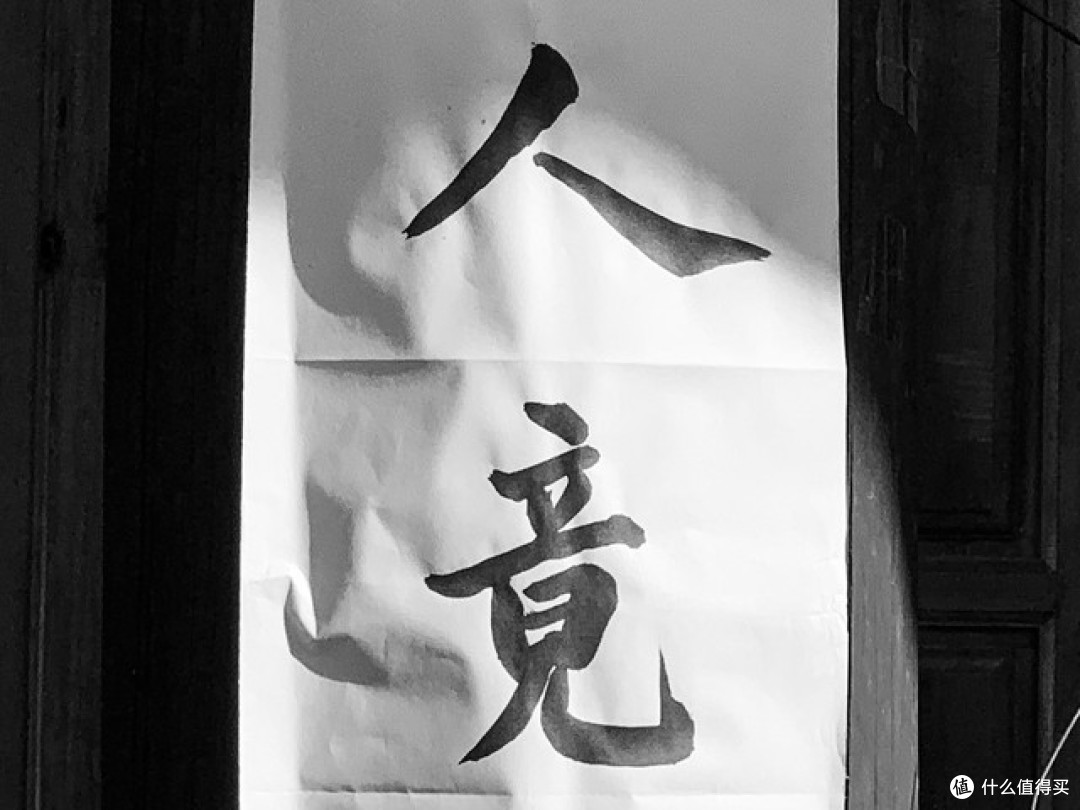 人
竟
值 什么值得买